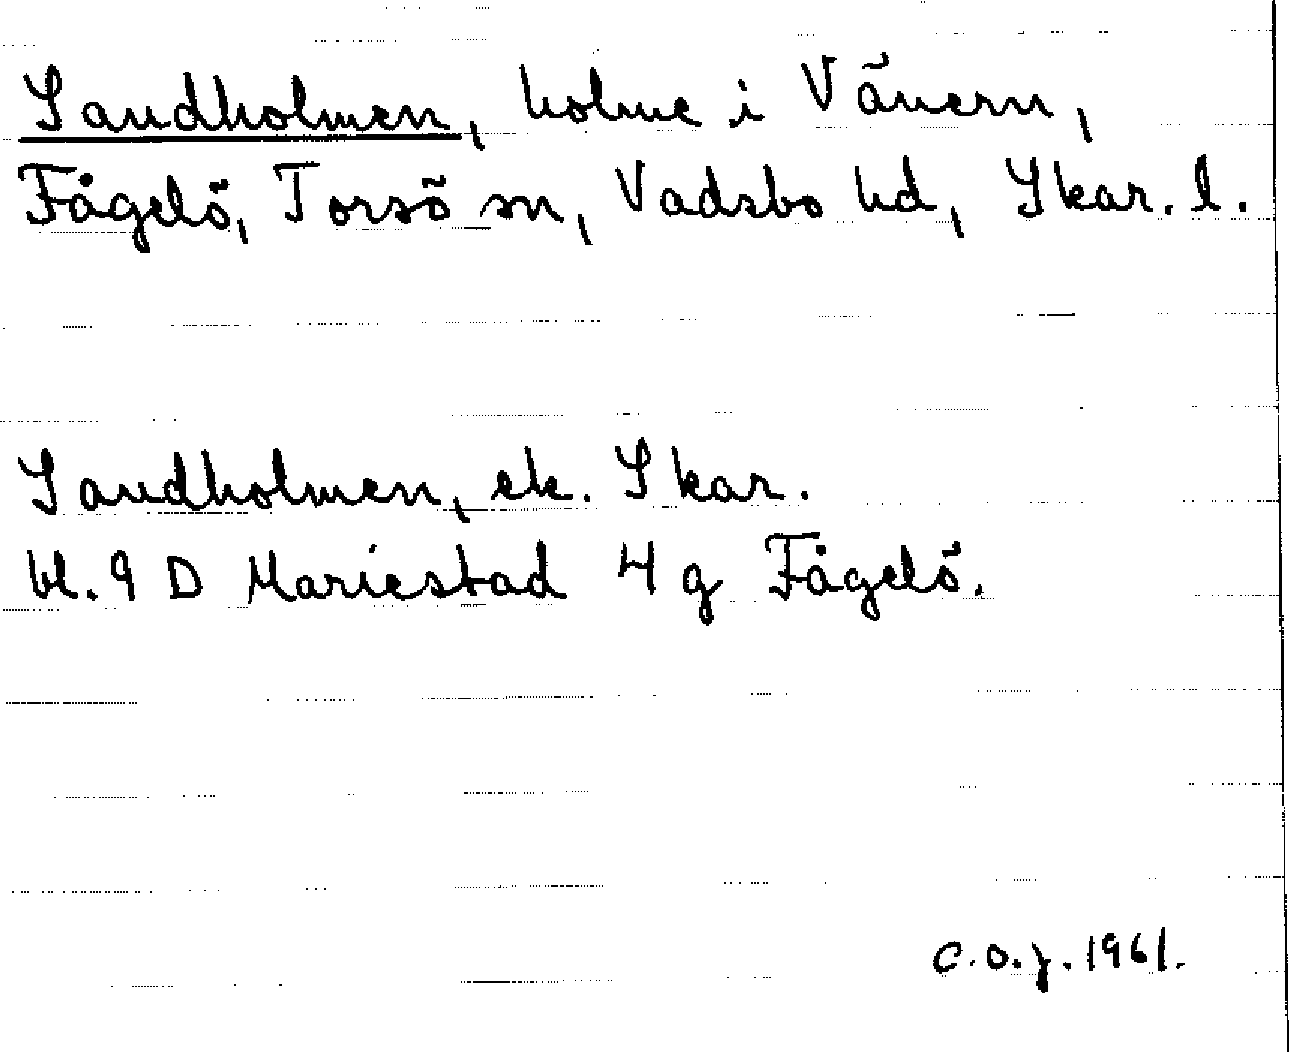 Sandholmen, holme i Vänern,
Fågelö, Torsö sn, Vadsbo hd, Skar. l.
Sandholmen, ek. Skar.
bl. 9 D Mariestad 4 g Fågelö.
C.O.J. 1961.